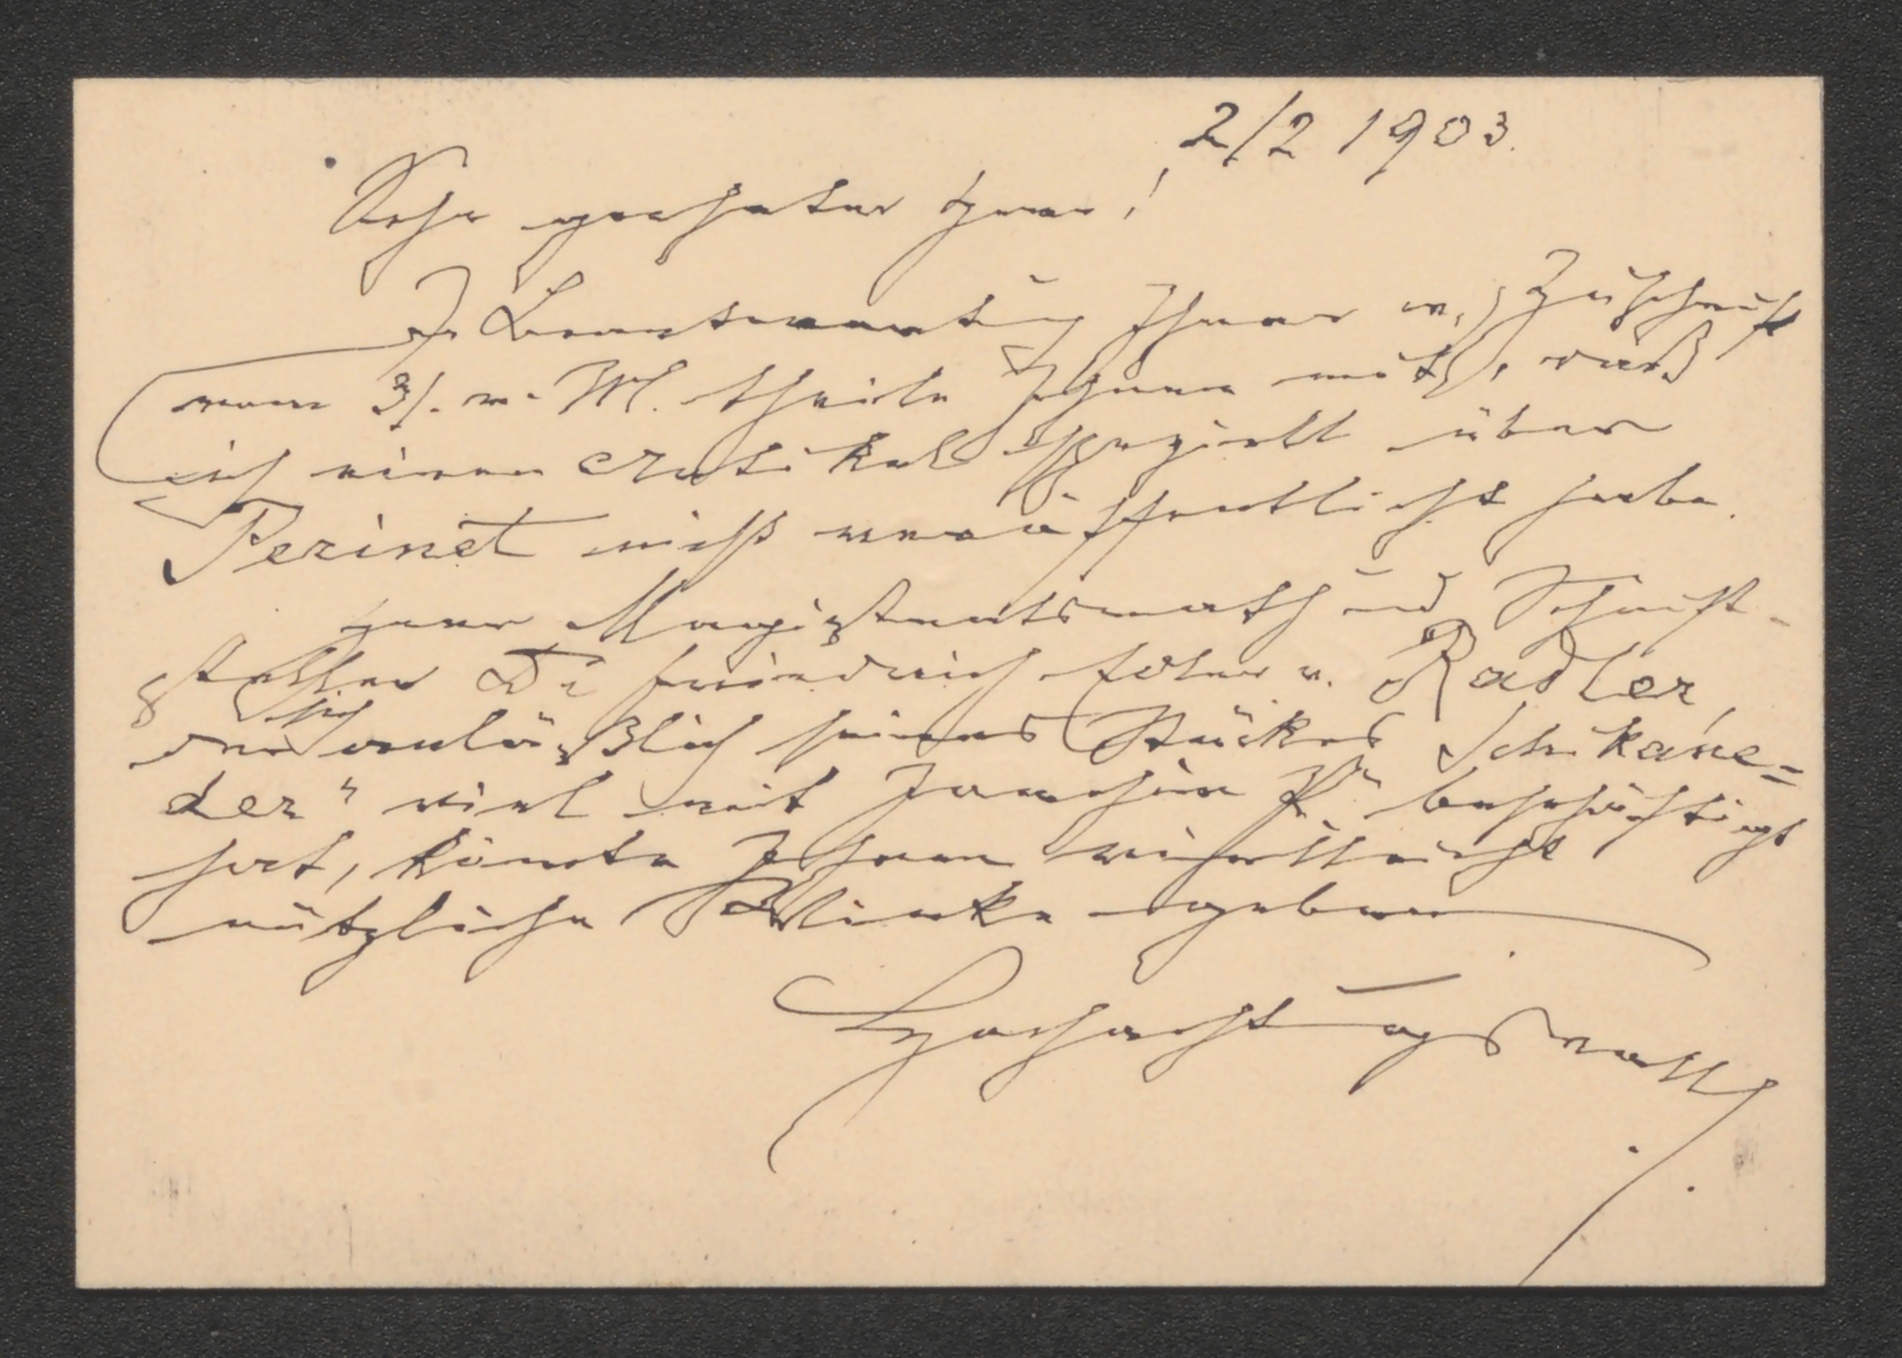 2/2 1903.
Sehr geehrter Herr!
In Beantwortung Ihrer w. Zuschrift
vom 31. v. M. theile Ihnen mit, daß
ich einen Artikel speziell über
Perinet nicht veröffentlicht habe.
Herr Magistratsrath und Schrift-
steller Dr Friedrich Edler v. Radler
der sich anläßlich seines Stückes „Schikane=
der“ viel mit Joachim P. beschäftigt
hat, könnte Ihnen vielleicht
nützliche Winke geben
Hochachtungsvoll